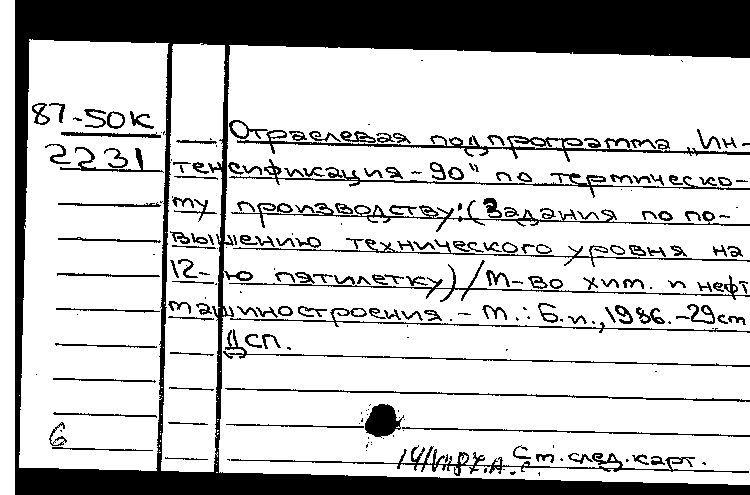 87-50К
2231
Отраслевая подпрограмма „Ин-
тенсификация-90" по термическо-
му производству:(Задания по по-
вышению технического уровня на
12-ю пятилетку)/М-во хим. и нефт
машиностроения.-М.:Б.и.,1986.-29ст
ДСП.
6
14/VII87. А.С.
См.след.карт.